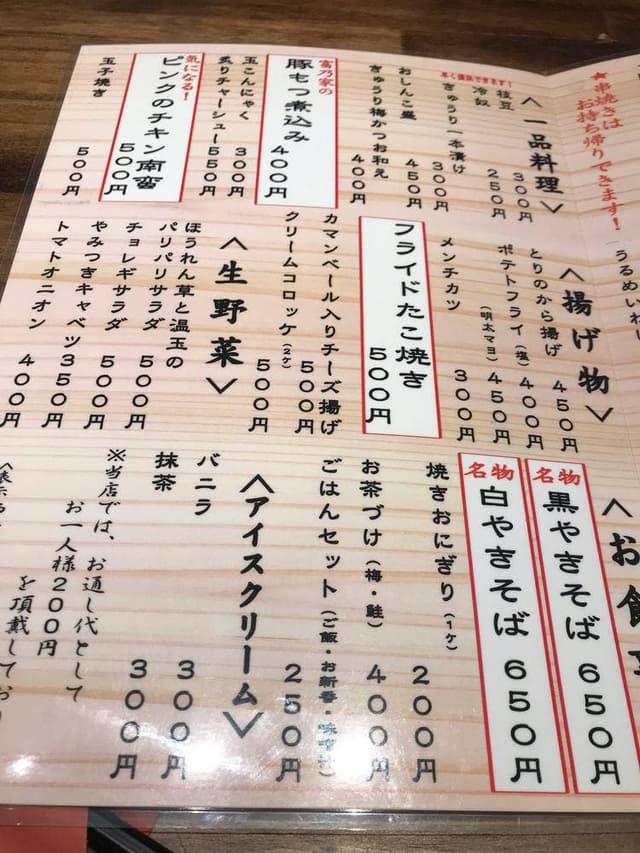 ★串焼きは
お持ち帰りできます！
うるめいわ
＜一品料理＞
早く提供できます！
枝豆 300円
冷奴 250円
きゅうり一本漬け 300円
おしんこ盛 450円
きゅうり梅かつお和え 400円
富乃家の
豚もつ煮込み 400円
玉こんにゃく 300円
炙りチャーシュー 550円
気になる！
ピンクのチキン南蛮 500円
玉子焼き 500円
＜揚げ物＞
とりのから揚げ 450円
ポテトフライ（塩） 400円
（明太マヨ） 450円
メンチカツ 300円
フライドたこ焼き 500円
カマンベール入りチーズ揚げ 500円
クリームコロッケ（2ヶ） 500円
＜生野菜＞
ほうれん草と温玉の
パリパリサラダ 500円
チョレギサラダ 500円
やみつきキャベツ 350円
トマトオニオン 400円
＜お食事
名物
黒やきそば 650円
名物
白やきそば 650円
焼きおにぎり（1ヶ） 200円
お茶づけ（梅・鮭） 400円
ごはんセット（ご飯・お新香・味噌汁） 250円
＜アイスクリーム＞
バニラ 300円
抹茶 300円
※当店では、お通し代として
お一人様200円
を頂戴してお